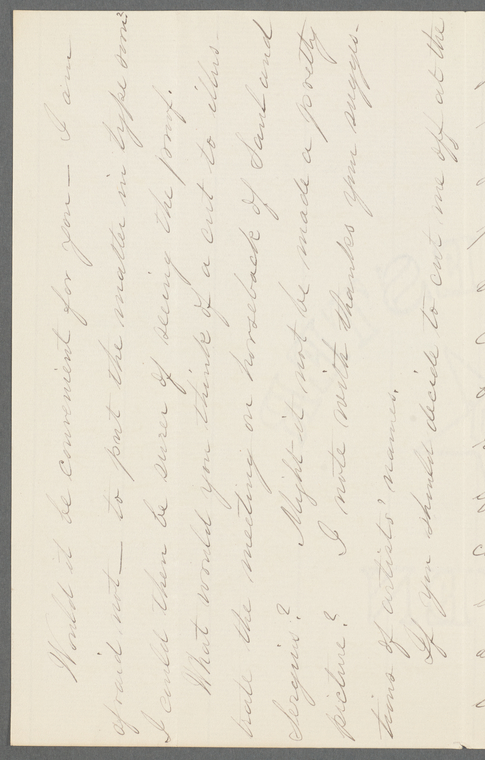 Would it be convenient for you — I am
afraid not — to put the matter in type now?
I could then be surer of seeing the proof.
What would you think of a cut to illus-
trate the meeting on horseback of Saul and
Sergius? Might it not be made a pretty
picture? I note with thanks your sugges-
tions of artists' names.
If you should decide to cut me off at the